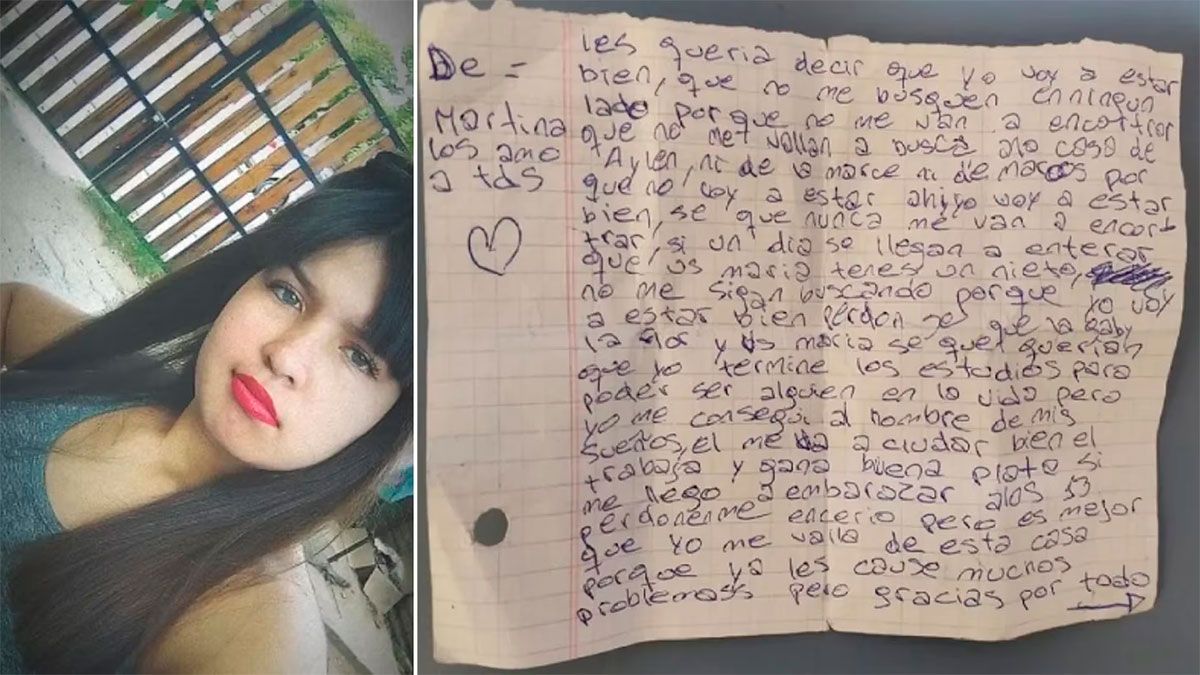 De =
Martina
los amo
a tds
les queria decir que yo voy a estar
bien, que no me busquen en ningun
lado porque no me van a encontrar
que no me vallan a busca alo casa de
Aylen, ni de la marce ni de marcos por
que no voy a estar ahi yo voy a estar
bien, se que nunca me van a encon
trar, si un dia se llegan a enterar
que vs maria tenes un nieto,
no me sigan buscando porque yo voy
a estar bien perdon se que la gaby
la flor y vs maria se que querian
que yo termine los estudios para
poder ser alguien en la vida pero
yo me consegui al hombre de mis
sueños, el me va a ciudar bien el
trabaja y gana buena plata si
me llego a embarazar alos 13
perdonenme encerio pero es mejor
que yo me valla de esta casa
porque ya les cause muchos
problemass pero gracias por todo